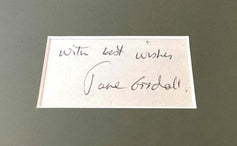 with best wishes
Jane Goodall.